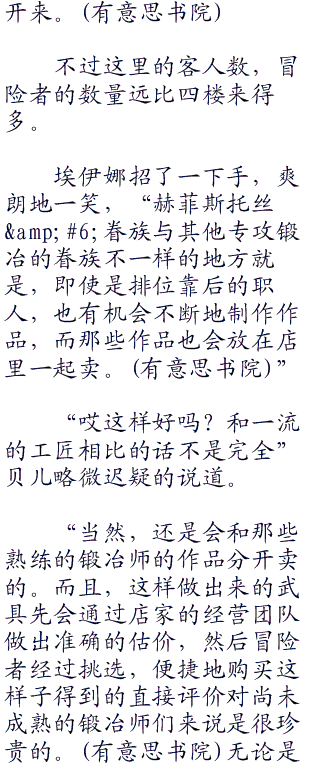 开来。(有意思书院)
不过这里的客人数，冒
险者的数量远比四楼来得
多。
埃伊娜招了一下手，爽
朗地一笑，“赫菲斯托丝
&amp;#6;眷族与其他专攻锻
冶的眷族不一样的地方就
是，即使是排位靠后的职
人，也有机会不断地制作作
品，而那些作品也会放在店
里一起卖。(有意思书院)”
“哎这样好吗？和一流
的工匠相比的话不是完全”
贝儿略微迟疑的说道。
“当然，还是会和那些
熟练的锻冶师的作品分开卖
的。而且，这样做出来的武
具先会通过店家的经营团队
做出准确的估价，然后冒险
者经过挑选，便捷地购买这
样子得到的直接评价对尚未
成熟的锻冶师们来说是很珍
贵的。(有意思书院)无论是